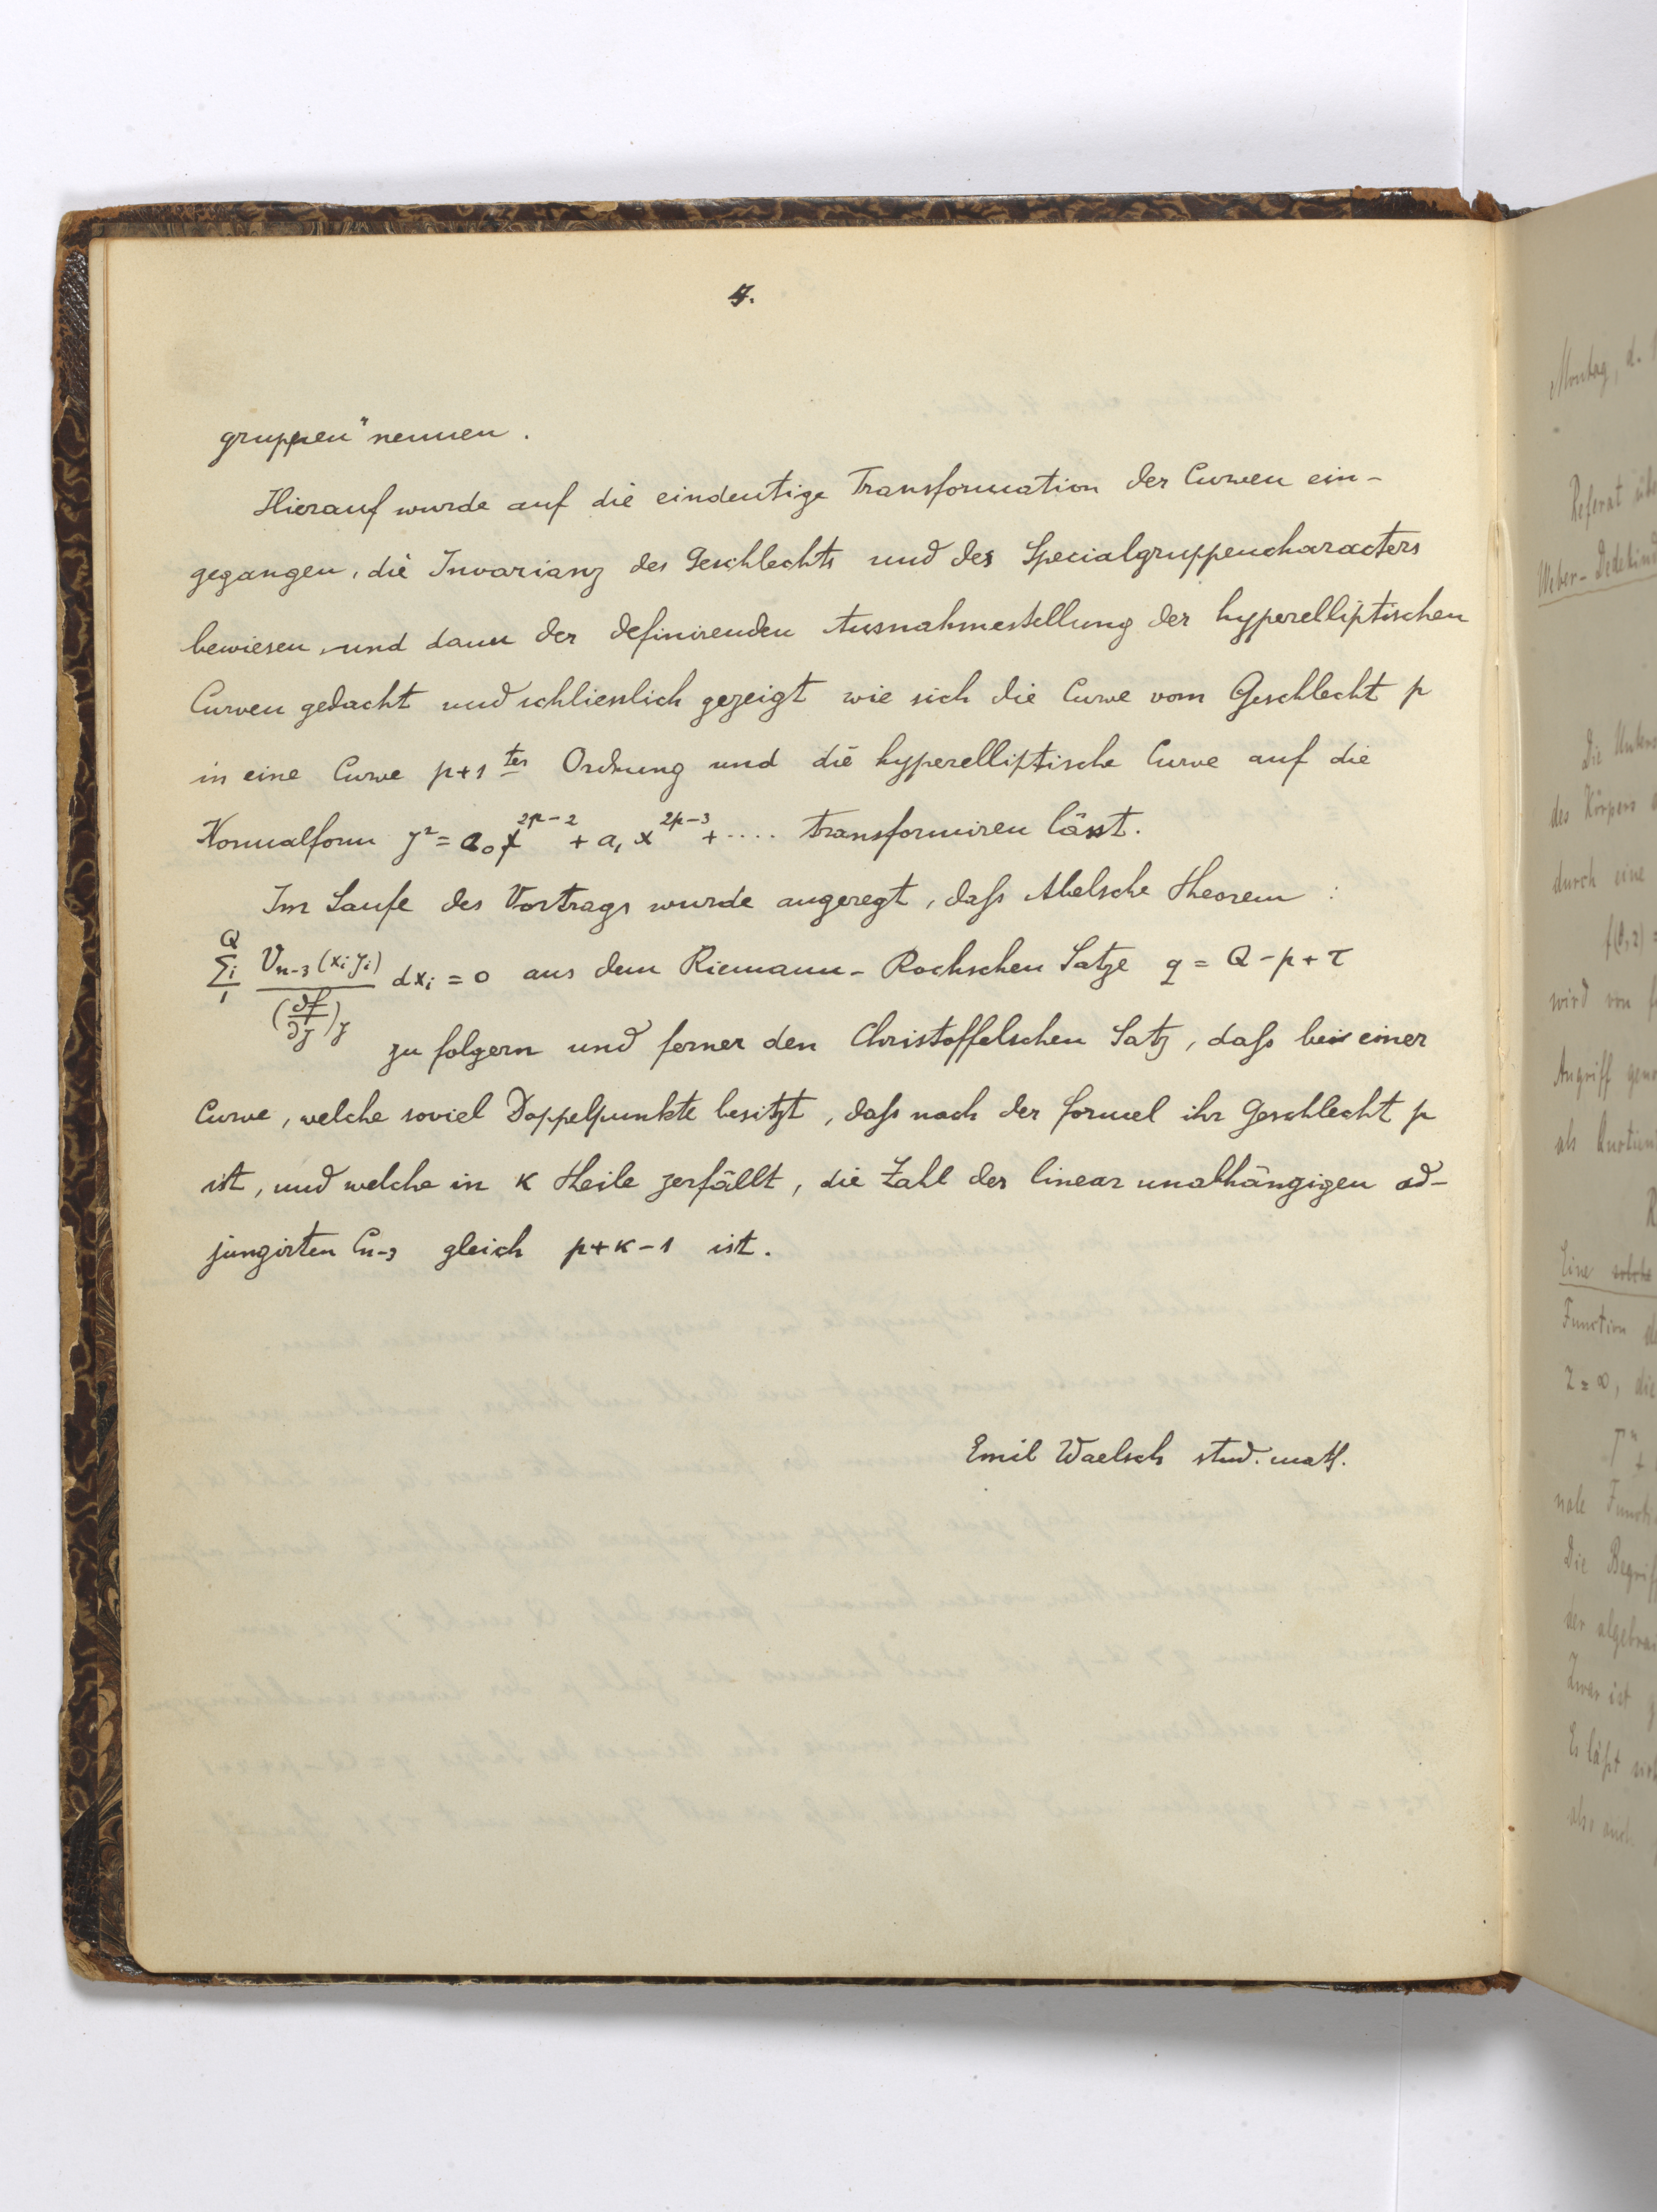 4.
gruppen" nennen.
Hierauf wurde auf die eindeutige Transformation der Curven ein-
gegangen, die Invarianz des Geschlechts und des Specialgruppencharacters
bewiesen, und dann der definirenden Ausnahmestellung der hyperelliptischen
Curven gedacht und schliesslich gezeigt wie sich die Curve vom Geschlecht p
in eine Curve p+1ter Ordnung und die hyperelliptische Curve auf die
Normalform y² = a₀x^{2p-2} + a₁x^{2p-3} + .... transformiren lässt.
Im Laufe des Vortrags wurde angeregt, daſs Abelsche Theorem :
\sum_{1}^{Q} i \frac{V_{n-3}(x_i y_i)}{(\frac{∂f}{∂y})_y} dx_i = 0 aus dem Riemann-Rochschen Satze q = Q-p+τ
zu folgern und ferner den Christoffelschen Satz, daſs bei einer
Curve, welche soviel Doppelpunkte besitzt, daſs nach der Formel ihr Geschlecht p
ist, und welche in κ Theile zerfällt, die Zahl der linear unabhängigen ad-
jungirten C_{n-3} gleich p+κ-1 ist.
Emil Waelsch stud. math.
Montag, d.
Referat übe
Weber-Dedekind
Die Unters
des Körpers
durch eine
wird von
Angriff geno
als
Eine solche
Function de
z = ∞, die
nale Functi
Die Begriff
der algebrai
Zwar ist g
Es läſst sich
also auch